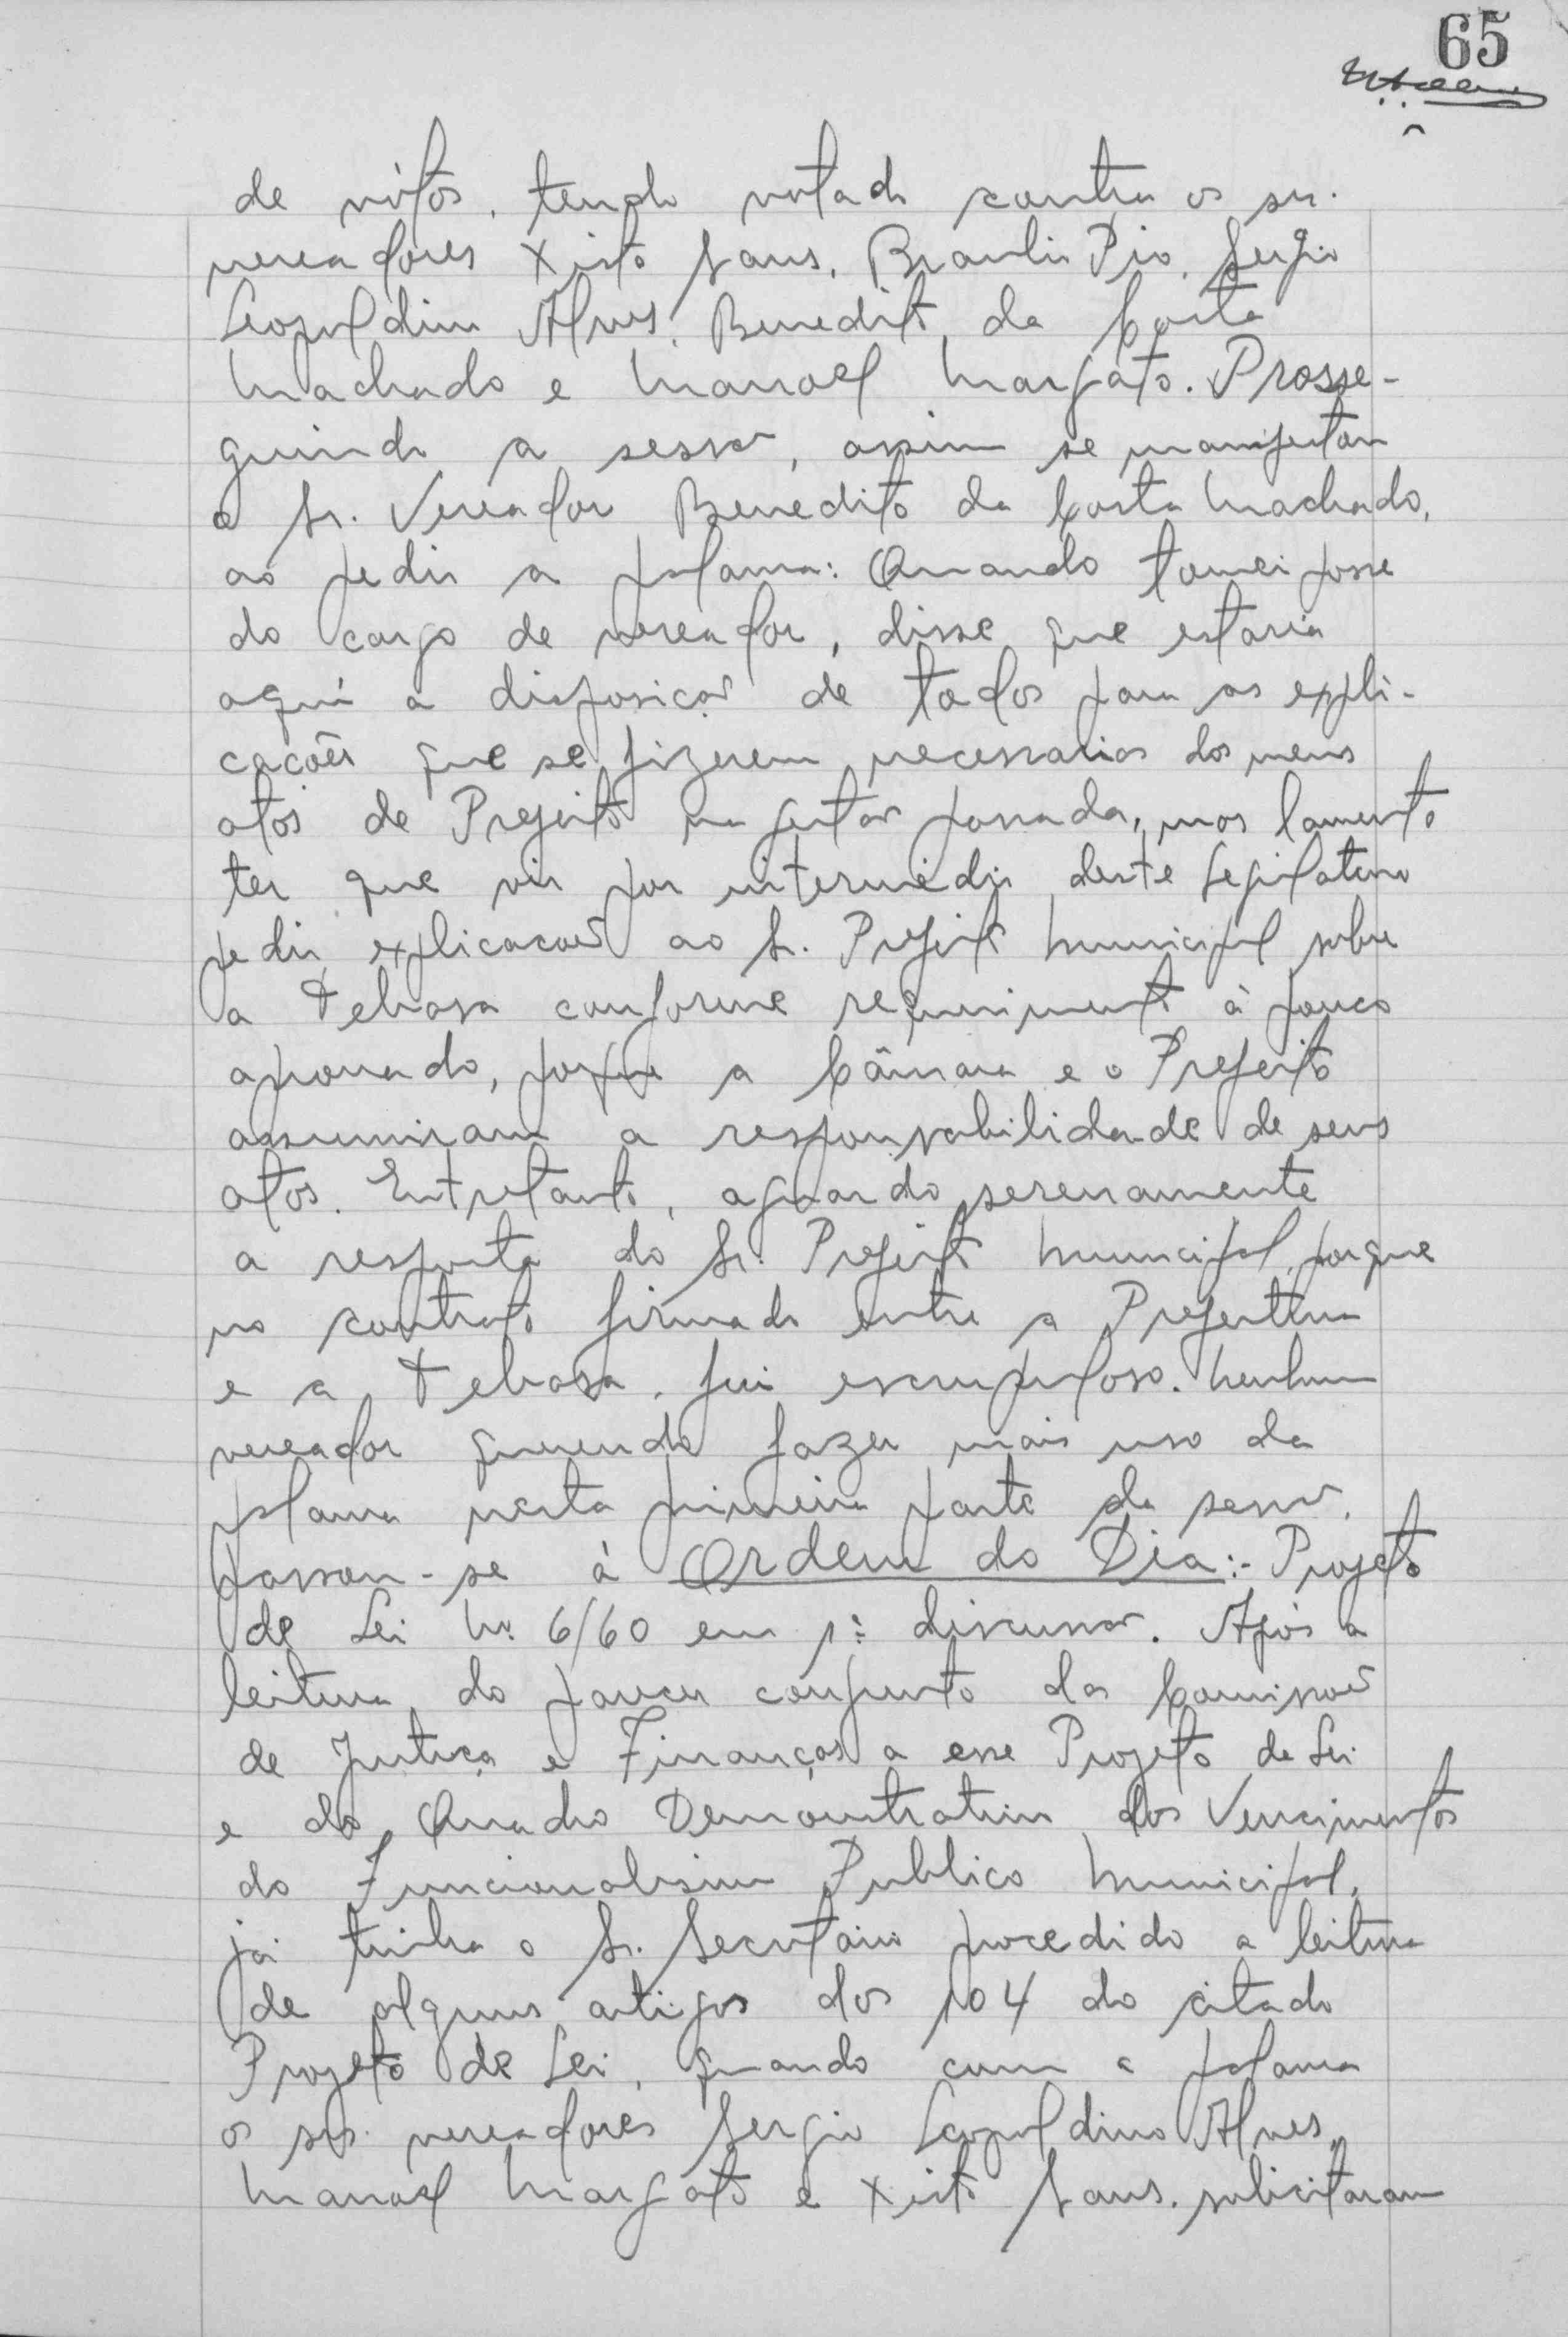 65
de vótos, tendo votado contra os srs.
vereadores Xisto Saus, Braulio Pio, Sergio
Leopoldino Alves, Benedito da Costa
Machado e Manoel Margato. Prosse-
guindo a sessão, assim se manifestou
o Sr. Vereador Benedito da Costa Machado,
ao pedir a palavra: Quando tomei posse
do cargo de vereador, disse que estaria
aqui a disposição de todos para as expli-
cações que se fizerem necessarias dos meus
atos de Prefeito na gestão passada, mas lamento
ter que vir por intermédio deste Legislativo
pedir explicações ao Sr. Prefeito Municipal sobre
a Tebasa conforme requerimento à pouco
aprovado, porque a Câmara e o Prefeito
assumiram a responsabilidade de seus
atos. Entretanto, aguardo serenamente
a resposta do Sr. Prefeito Municipal, porque
no contrato firmado entre a Prefeitura
e a Tebasa, fui escrupuloso. Nenhum
vereador querendo fazer mais uso da
palavra nesta primeira parte da sessão,
passou-se à Ordem do Dia:- Projeto
de Lei Nº 6/60 em 1ª discussão. Após a
leitura do parecer conjunto das Comissões
de Justiça e Finanças a esse Projeto de Lei
e do Quadro Demonstrativo dos Vencimentos
do Funcionalismo Publico Municipal,
já tinha o Sr. Secretario procedido a leitura
de alguns artigos dos 104 do citado
Projeto de Lei, quando com a palavra
os srs. vereadores Sergio Leopoldino Alves,
Manoel Margato e Xisto Saus, solicitaram